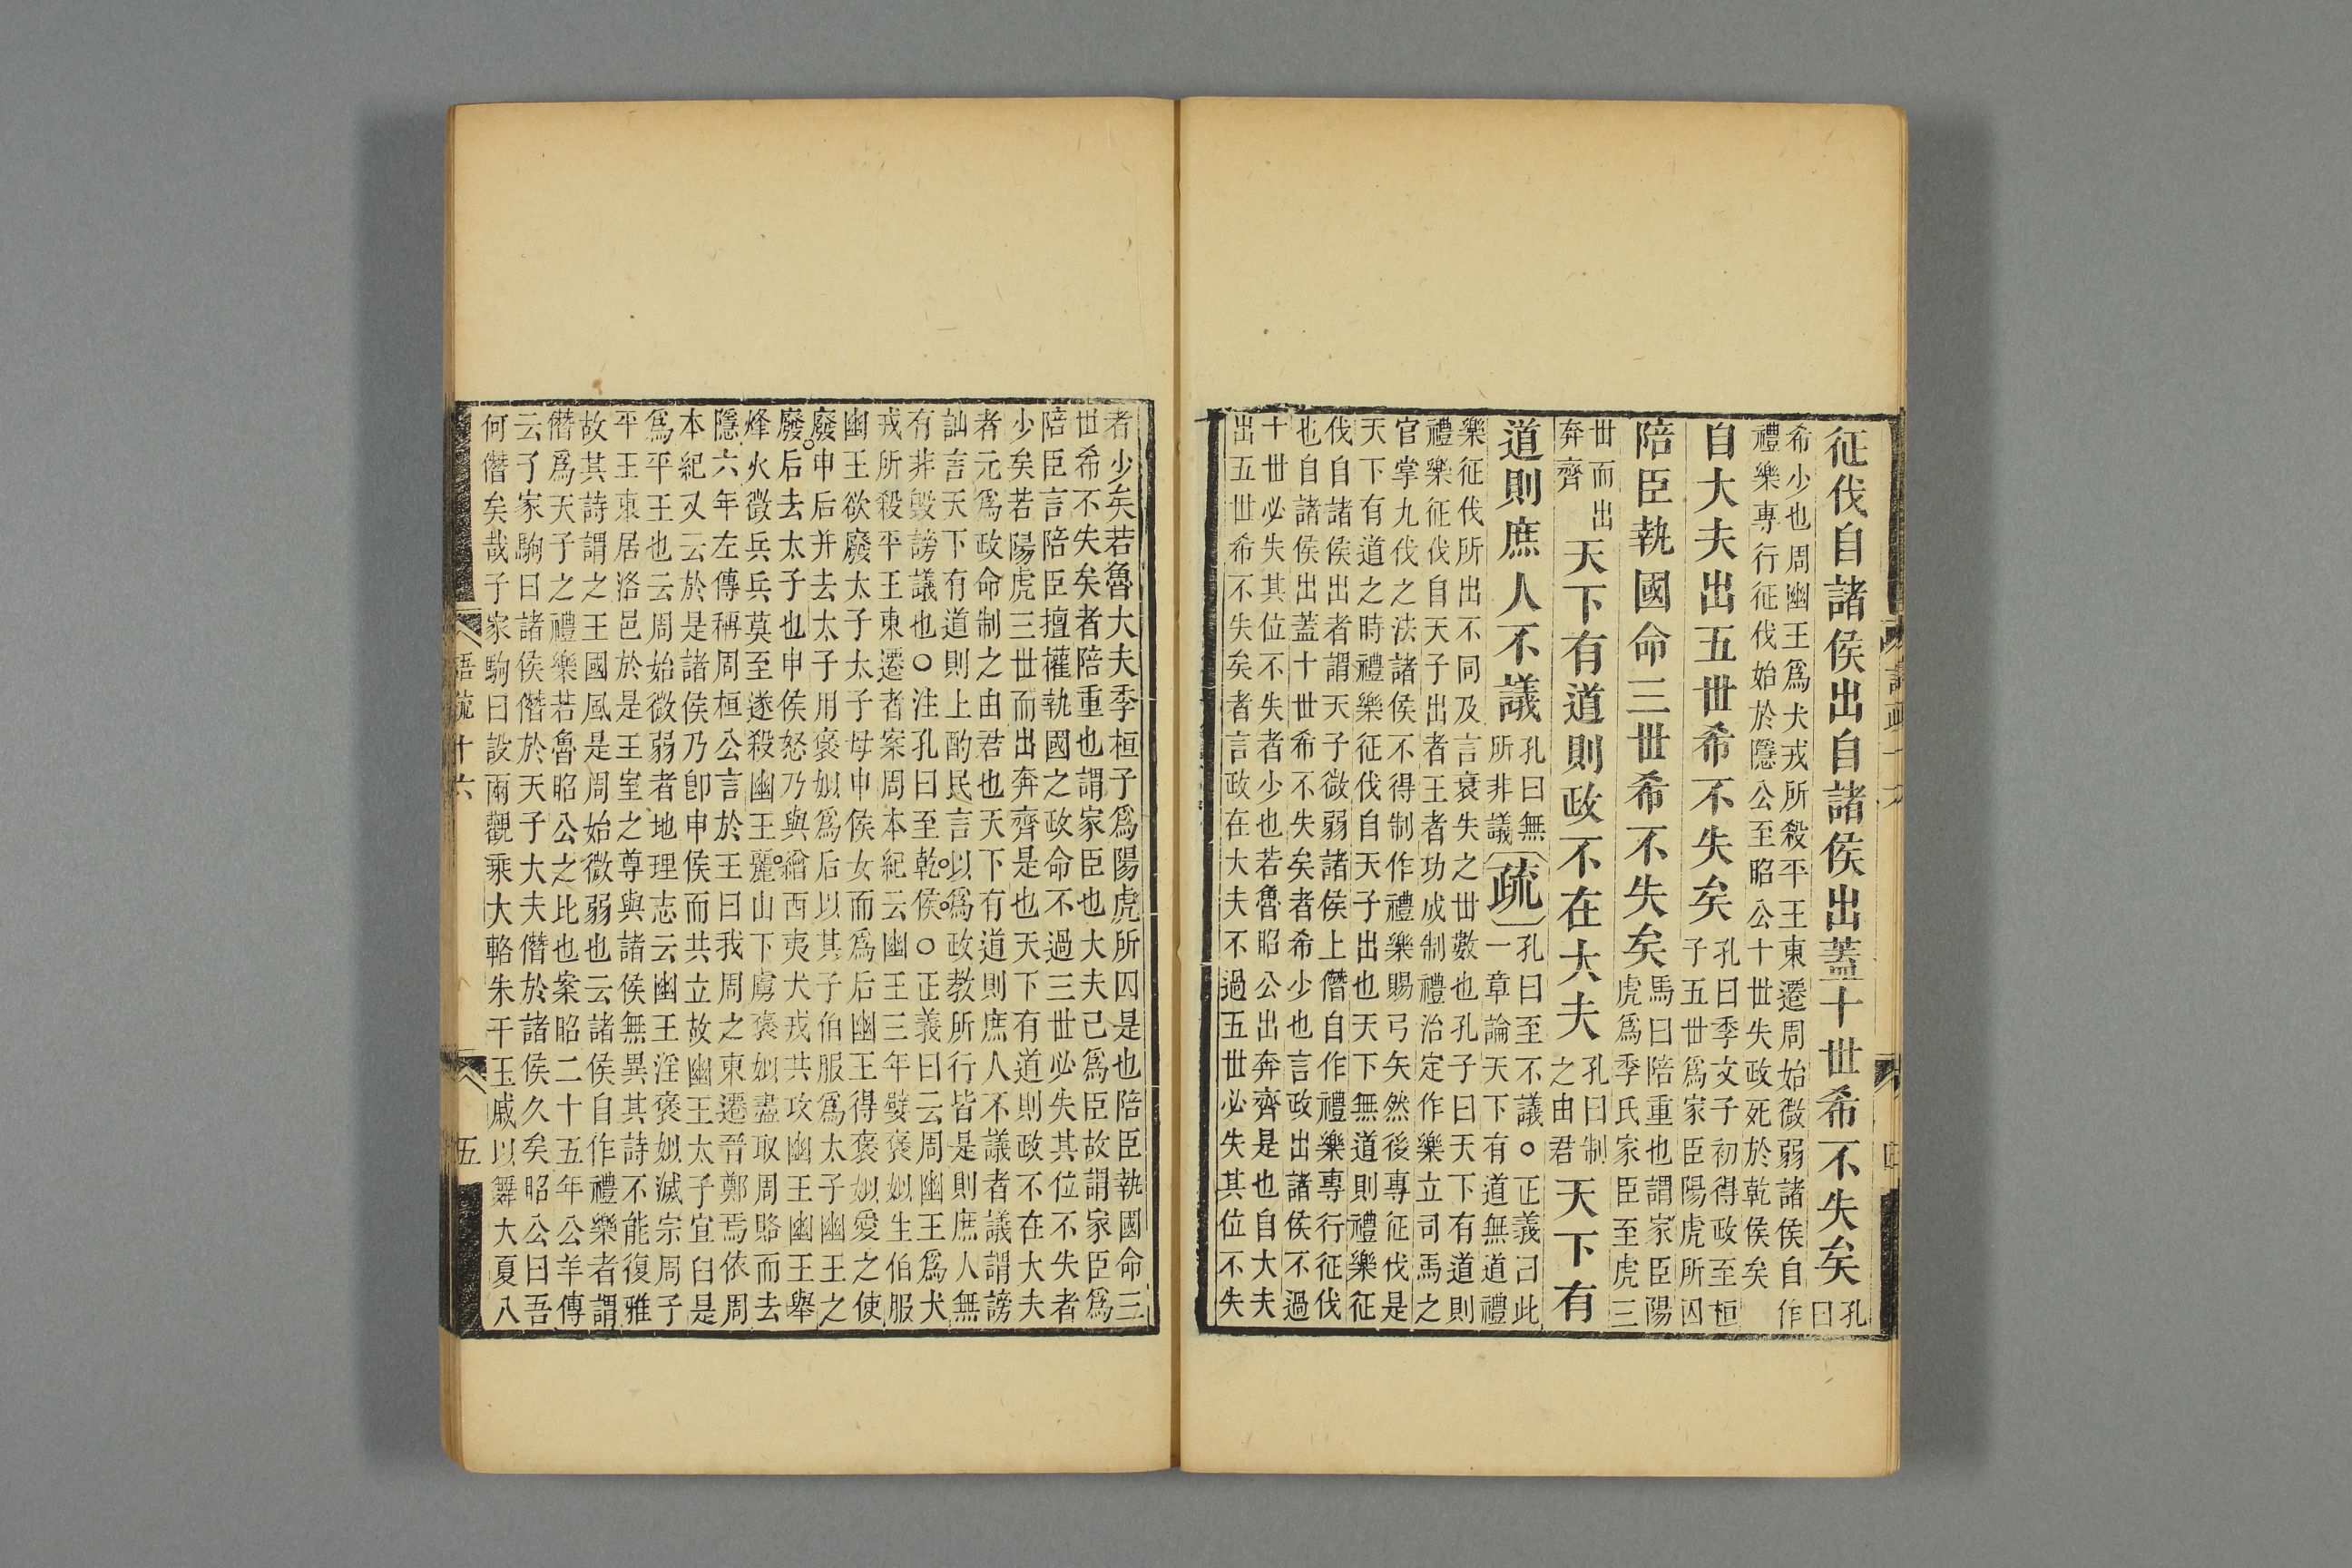 征伐自諸侯出自諸侯出蓋十世希不失矣孔曰
希少也周幽王爲犬戎所殺平王東遷周始微弱諸侯自作
禮樂專行征伐始於隱公至昭公十世失政死於乾侯矣
自大夫出五世希不失矣孔曰季文子初得政至桓
子五世爲家臣陽虎所囚
陪臣執國命三世希不失矣馬曰陪重也謂家臣陽
虎爲季氏家臣至虎三
世而出
奔齊
天下有道則政不在大夫孔曰制
之由君
天下有
道則庶人不議孔曰無
所非議
疏
孔曰至不議○正義曰此
一章論天下有道無道禮
樂征伐所出不同及言衰失之世數也孔子曰天下有道則
禮樂征伐自天子出者王者功成制禮治定作樂立司馬之
官掌九伐之法諸侯不得制作禮樂賜弓矢然後專征伐是
天下有道之時禮樂征伐自天子出也天下無道則禮樂征
伐自諸侯出者謂天子微弱諸侯上僭自作禮樂專行征伐
也自諸侯出蓋十世希不失矣者希少也言政出諸侯不過
十世必失其位不失者少也若魯昭公出奔齊是也自大夫
出五世希不失矣者言政在大夫不過五世必失其位不失
者少矣若魯大夫季桓子爲陽虎所囚是也陪臣執國命三
世希不失矣者陪重也謂家臣也大夫已爲臣故謂家臣爲
陪臣言陪臣擅權執國之政命不過三世必失其位不失者
少矣若陽虎三世而出奔齊是也天下有道則政不在大夫
者元爲政命制之由君也天下有道則庶人不議者議謂謗
訕言天下有道則上酌民言以爲政教所行皆是則庶人無
有非毀謗議也○注孔曰至乾侯○正義曰云周幽王爲犬
戎所殺平王東遷者案周本紀云幽王三年嬖褒姒生伯服
幽王欲廢太子太子母申侯女而爲后幽王得褒姒愛之使
廢申后并去太子用褒姒爲后以其子伯服爲太子幽王之
廢后去太子也申侯怒乃與繒西夷犬戎共攻幽王幽王舉
烽火徵兵兵莫至遂殺幽王麗山下虜褒姒盡取周賂而去
隱六年左傳稱周桓公言於王曰我周之東遷晉鄭焉依周
本紀又云於是諸侯乃卽申侯而共立故幽王太子宜臼是
爲平王也云周始微弱者地理志云幽王淫褒姒滅宗周子
平王東居洛邑於是王室之尊與諸侯無異其詩不能復雅
故其詩謂之王國風是周始微弱也云諸侯自作禮樂者謂
僭爲天子之禮樂若魯昭公之比也案昭二十五年公羊傳
云子家駒曰諸侯僭於天子大夫僭於諸侯久矣昭公曰吾
何僭矣哉子家駒曰設兩觀乘大輅朱干玉戚以舞大夏八
語疏十六
五